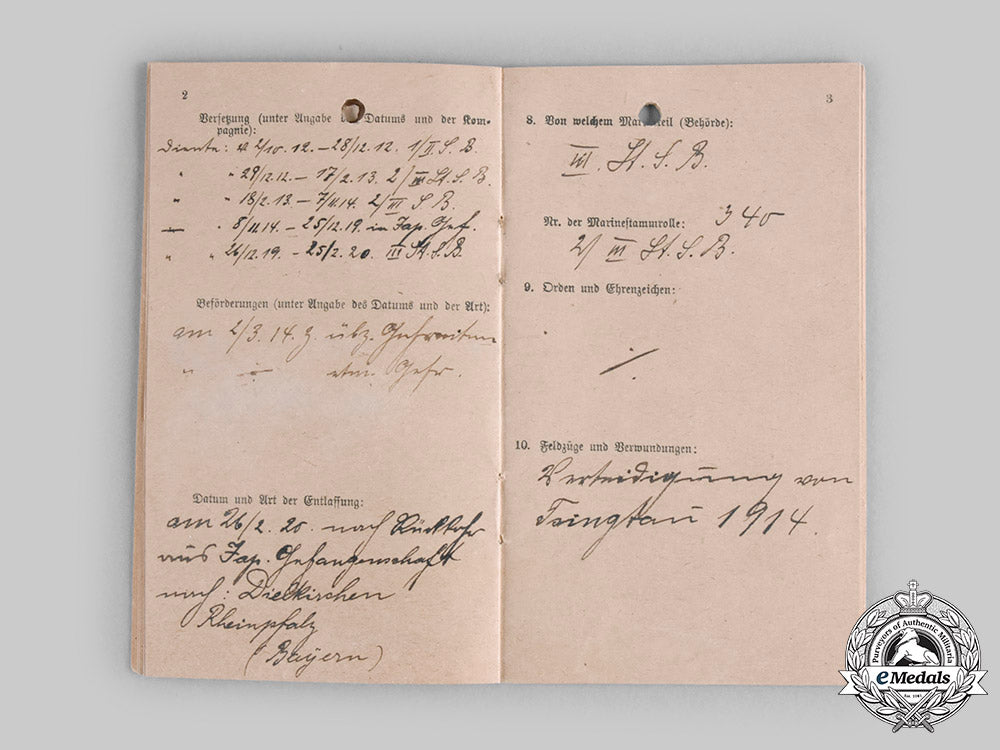 2
Versetzung (unter Angabe des Datums und der Kom-
pagnie):
Diente: v. 2/10. 12. – 28/12. 12. 1/II S. B.
" " 29/12.12. – 17/2. 13. 2/III St. S. B.
" " 18/2.13. – 7/11.14. 2/III S. B.
— " 8/11.14. – 25/12.19. in Jap. Gef.
" " 26/12.19. – 25/2. 20. III St. S. B.
Beförderungen (unter Angabe des Datums und der Art):
am 2/3. 14. z. übz. Gefreiten
" — Gefr.
Datum und Art der Entlassung:
am 26/2. 20. nach Rückkehr
aus Jap. Gefangenschaft
nach: Dielkirchen
Rheinpfalz
(Bayern)
3
8. Von welchem Marineteil (Behörde):
III. St. S. B.
Nr. der Marinestammrolle: 340
2/ III St. S. B.
9. Orden und Ehrenzeichen:
10. Feldzüge und Verwundungen:
Verteidigung von
Tsingtau 1914.
Purveyors of Authentic Militaria
eMedals